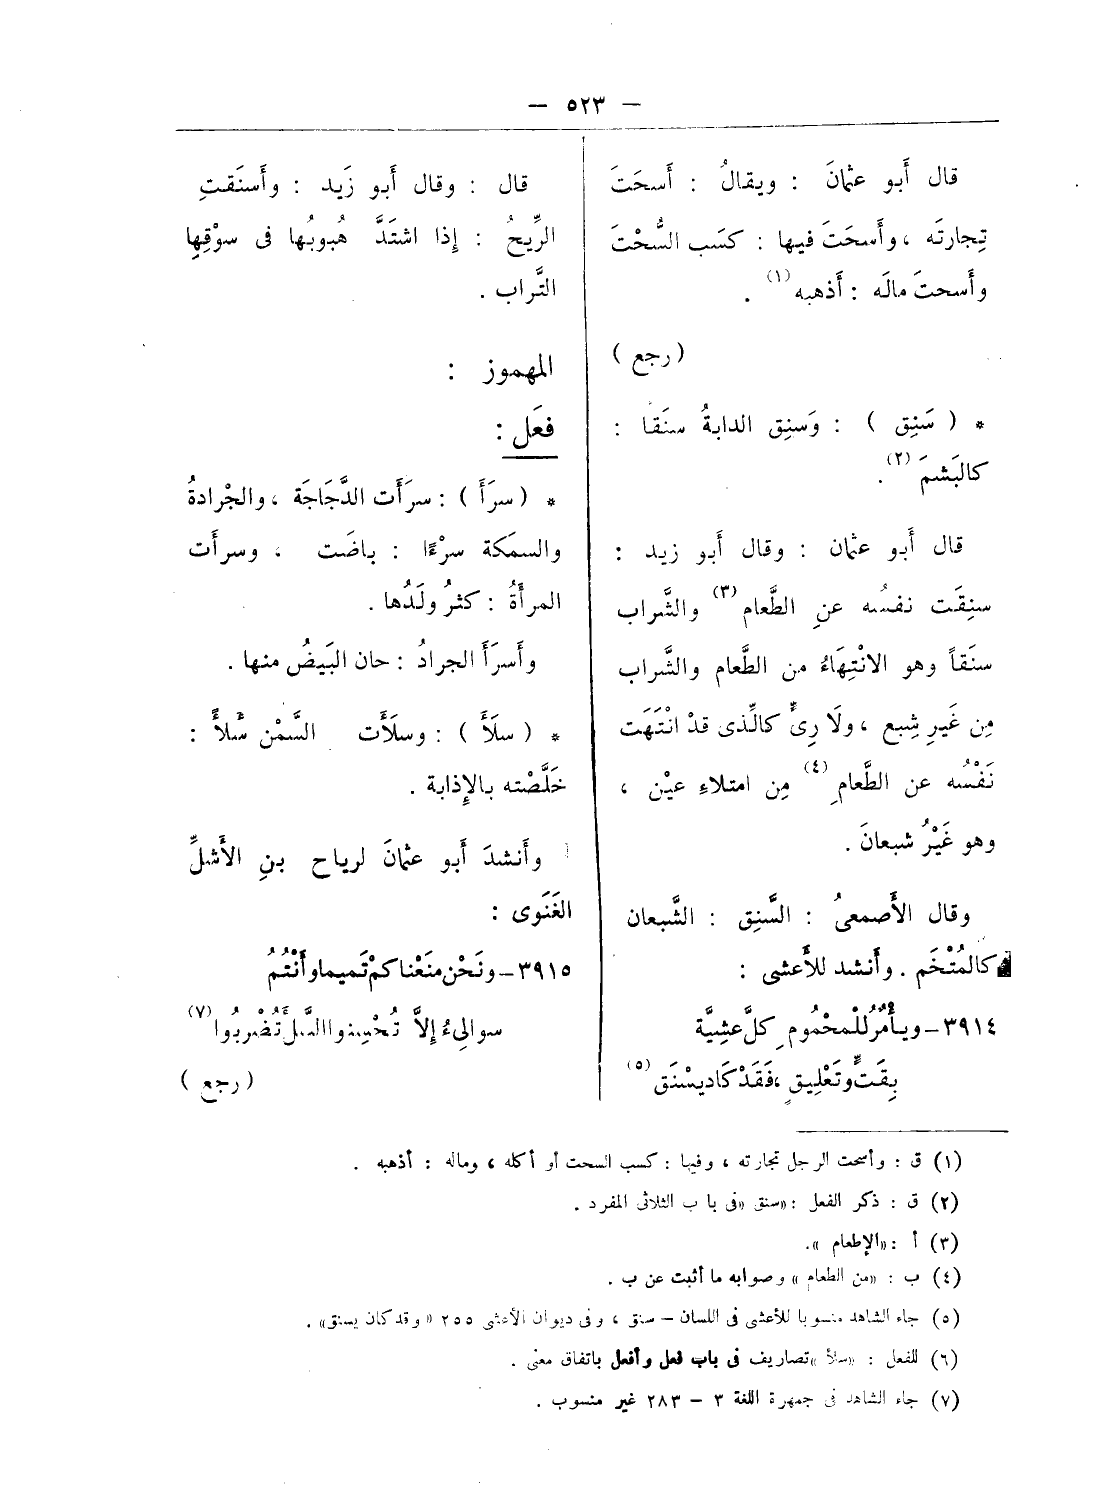 — ٥٢٣ —
قال أَبو عثمانَ : ويقالُ : أَسحَتَ
تِجارتَه ، وأَسحَتَ فيها : كسَب السُّحْتَ
وأَسحتَ مالَه : أَذهبه (١) .
( رجع )
* ( سَنِق ) : وَسنِق الدابةُ سنَقا :
كالبَشمَ (٢) .
قال أَبو عثمان : وقال أَبو زيد :
سنِقَت نفسُه عنِ الطَّعام (٣) والشَّراب
سنَقاً وهو الانْتِهَاءُ من الطَّعام والشَّراب
مِن غَيرِ شِبع ، ولَا رِىٍّ كالَّذى قدْ انْتَهَت
نَفْسُه عن الطَّعامِ (٤) مِن امتلاءِ عيْن ،
وهو غَيْرُ شبعانَ .
وقال الأَصمعىُ : السَّنِق : الشَّبعان
كالمُتْخَم . وأَنشد للأَعشى :
٣٩١٤ – ويأْمُرُ للْمحْمُومِ كلَّ عشِيَّة
بِقَتٍّ وتَعْلِيقٍ ، فَقَدْ كَاد يسْنَق (٥)
قال : وقال أَبو زَيد : وأَسنَقتِ
الرِّيحُ : إِذا اشتَدَّ هُبوبُها فى سوْقِها
التَّراب .
المهموز :
فعَل :
* ( سرَأَ ) : سرَأَت الدَّجَاجَة ، والجْرادةُ
والسمَكة سرْءًا : باضَت ، وسرأَت
المرأَةُ : كثرُ ولَدُها .
وأَسرَأَ الجرادُ : حان البَيضُ منها .
* ( سلَأَ ) : وسلَأَت السَّمْن سْلأً :
خَلَّصْته بالإِذابة .
وأَنشدَ أَبو عثمانَ لرياح بنِ الأَشلِّ
الغَنَوى :
٣٩١٥ – ونَحْن منَعْناكمْ تَميما وأَنْتُمُ
سوالِىءُ إِلاَّ تُحْسِنوا السَّلَ تُضْربُوا (٧)
( رجع )
(١) ق : وأسحت الرجل تجارته ، وفيها : كسب السحت أو أكله ، وماله : أذهبه .
(٢) ق : ذكر الفعل : «سنق » فى باب الثلاثى المفرد .
(٣) أ : «الإطعام ».
(٤) ب : «من الطعام » وصوابه ما أثبت عن ب .
(٥) جاء الشاهد منسوبا للأعشى فى اللسان – سنق ، وفى ديوان الأعشى ٢٥٥ «وقد كان يسنق» .
(٦) للفعل : «سلأ » تصاريف فى باب فعل وأفعل باتفاق معنى .
(٧) جاء الشاهد فى جمهرة اللغة ٣ – ٢٨٣ غير منسوب .